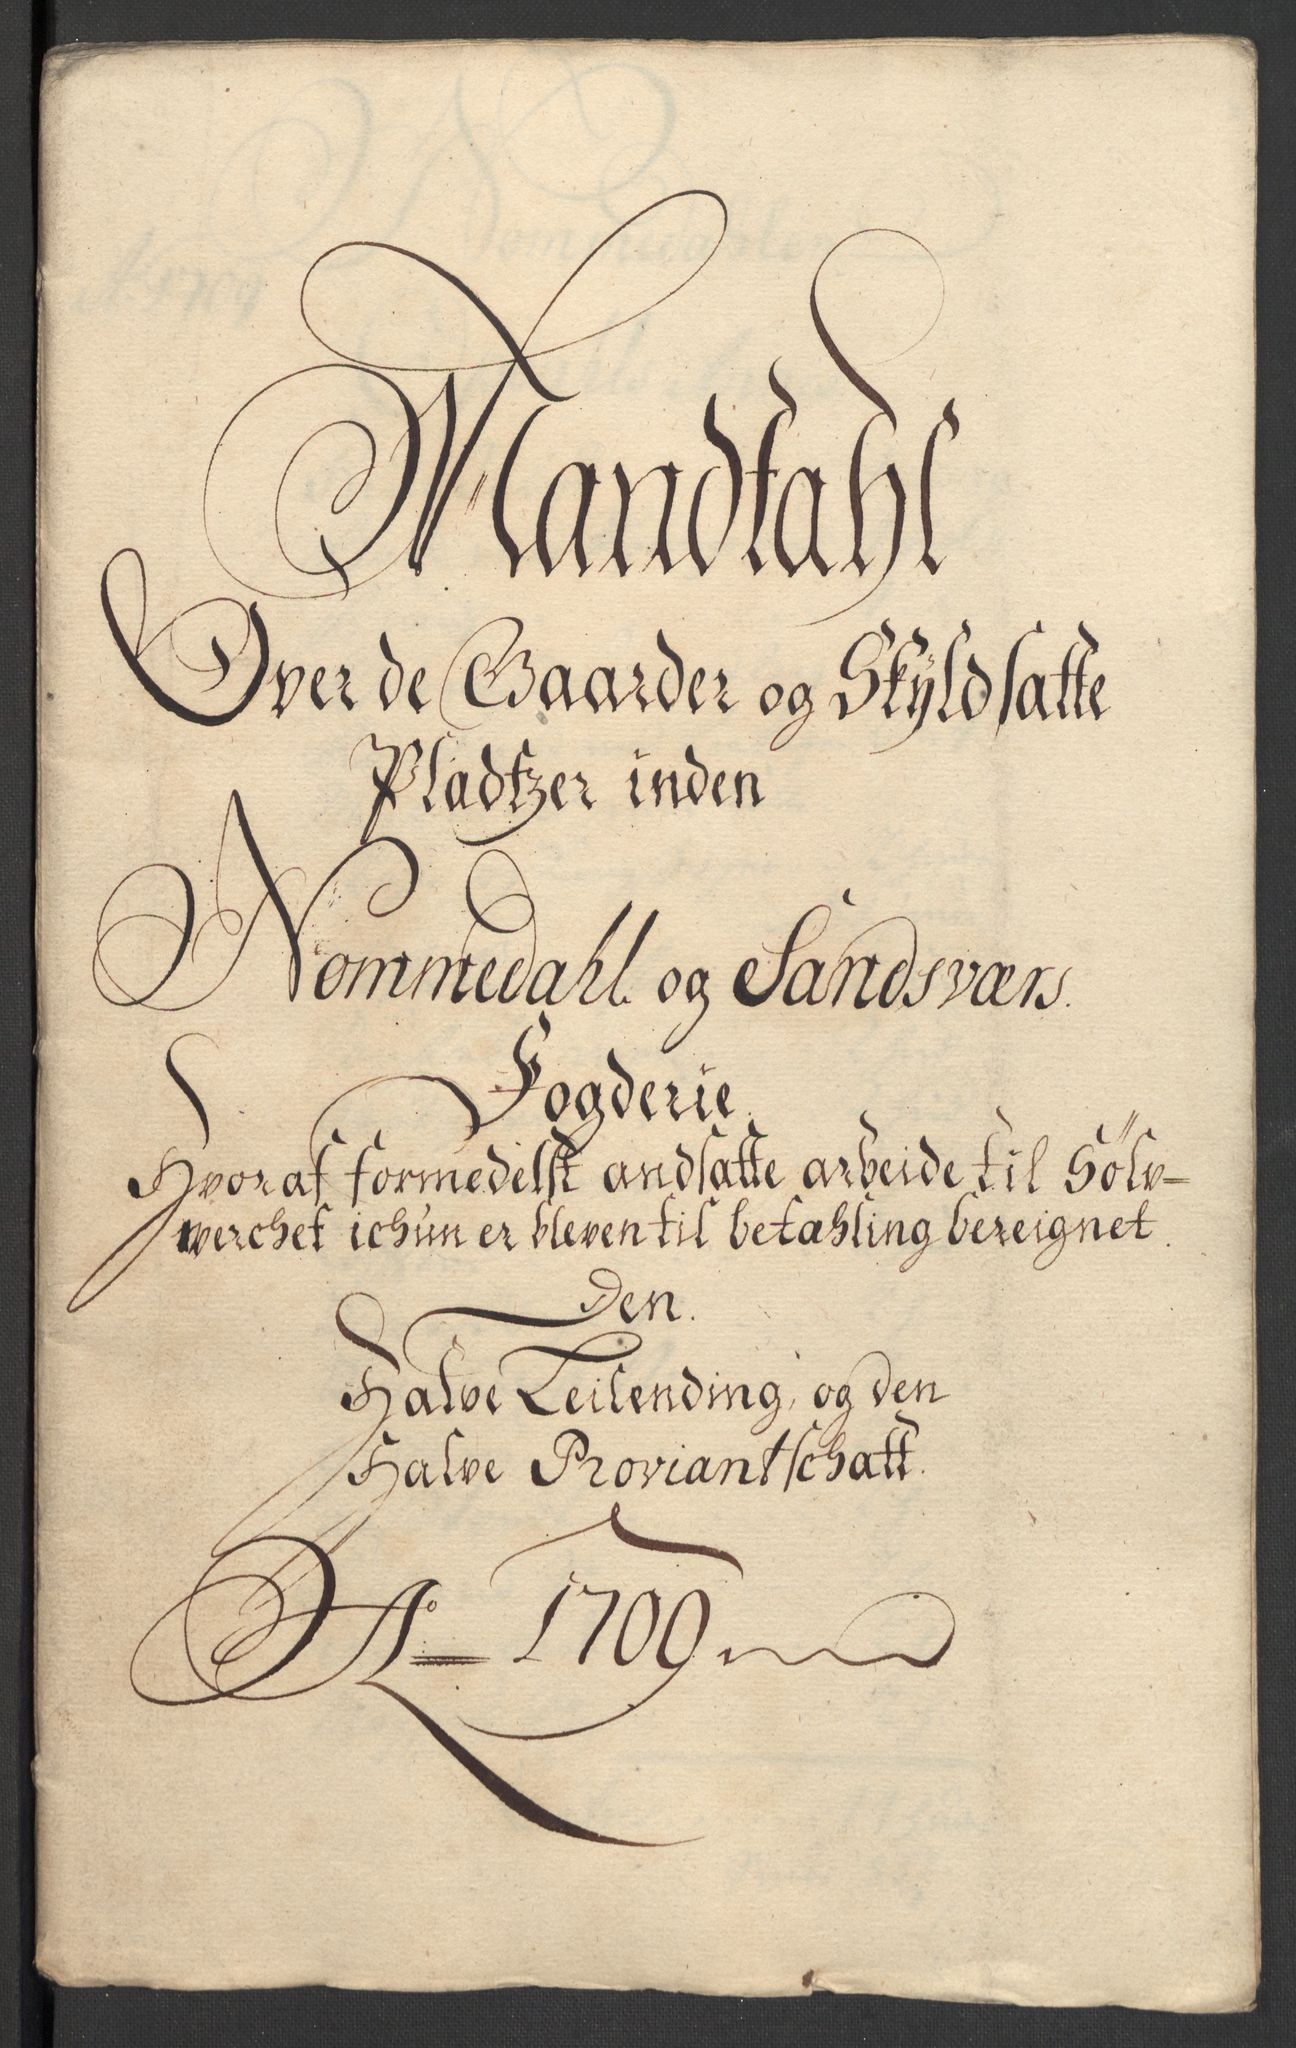 Mandtahl
Over de Gaarder og Skyldsatte
Pladtzer inden
Nommedahl og Sandsværs.
Fogderie.
Hvoraf formedelst andsatte arbeide til Sölv-
werchet ichun er bleven til betahling bereignet.
Den.
Halve Leilending, og den
Halve Proviantschatt.
Ao 1709